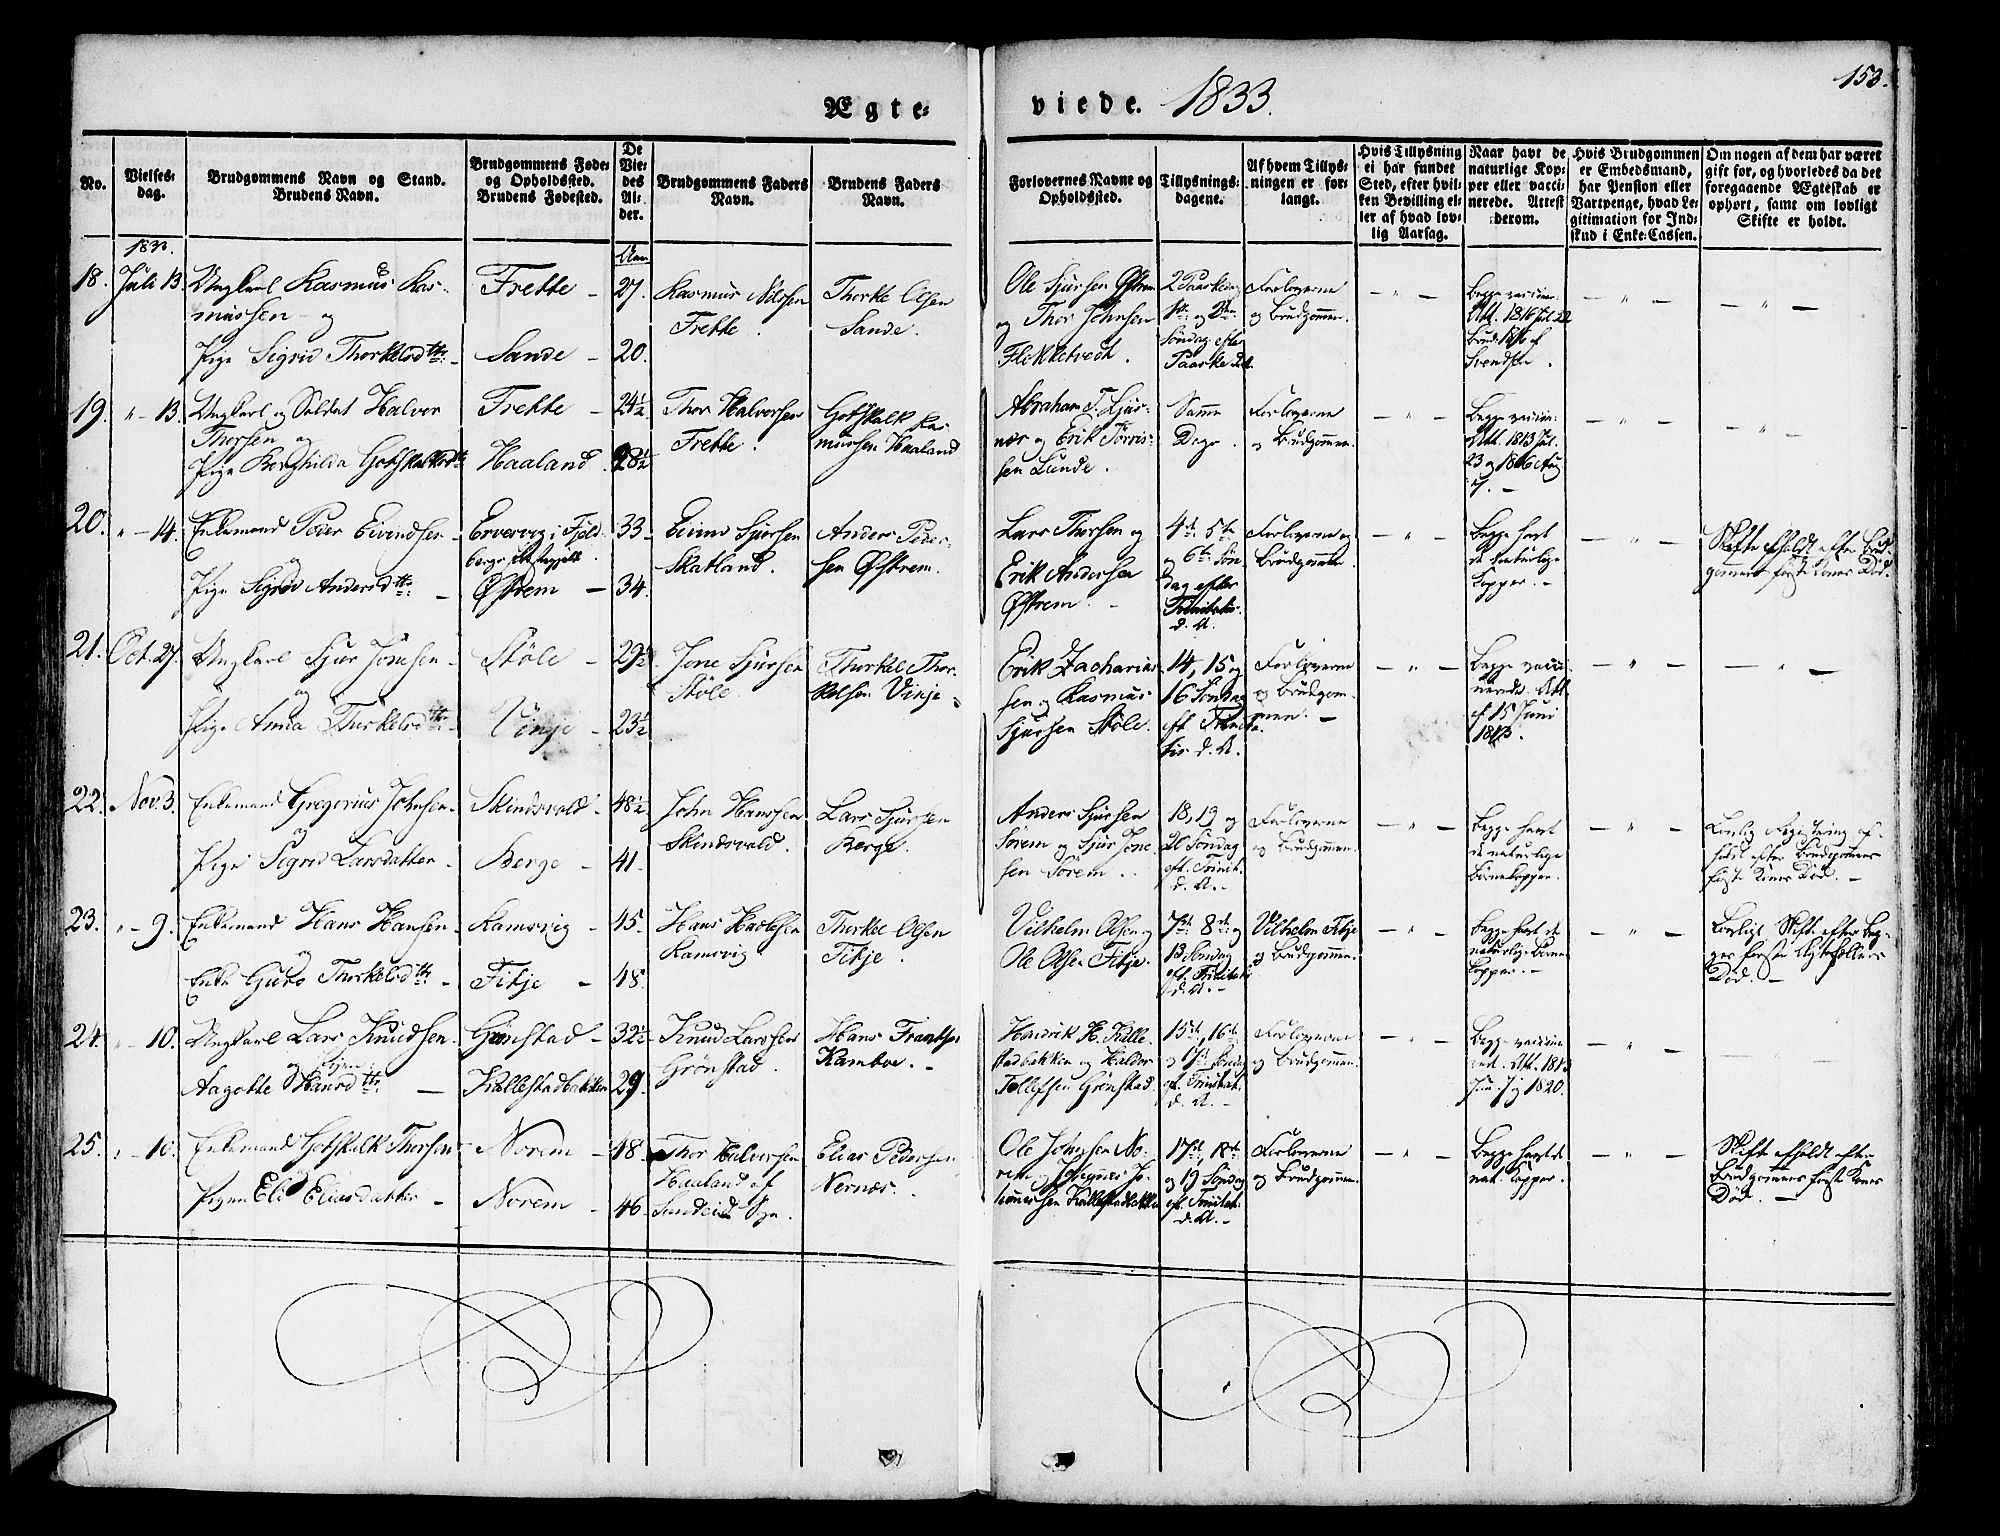 Ægte-
viede. 1833.
153.
No.
Vielses-
dag.
Brudgommens Navn og Stand.
Brudens Navn.
Brudgommens Føde-
og Opholdssted.
Brudens Fødested.
De
Vie-
des
Al-
der.
Brudgommens Faders
Navn.
Brudens Faders
Navn.
Forlovernes Navne og
Opholdssted.
Tillysnings-
dagene.
Af hvem Tillys-
ningen er for-
langt.
Hvis Tillysning
ei har fundet
Sted, efter hvil-
ken Bevilling el-
ler af hvad lov-
lig Aarsag.
Naar havt de
naturlige Kop-
per eller vacci-
nerede. Attest
derom.
Hvis Brudgommen
er Embedsmand,
har Pension eller
Vartpenge, hvad Le-
gitimation for Ind-
skud i Enke-Cassen.
Om nogen af dem har været
gift før, og hvorledes da det
foregaaende Ægteskab er
ophørt, samt om lovligt
Skifte er holdt.
1833.
Aar
18. Juli 13. Ungkarl Rasmus Ras-
mussen og
Pige Sigrid Thorkelsdtr.
Frette
Sande
27.
20.
Rasmus Nilsen
Frette.
Thorke Olsen
Sande.
Ole Sjursen Østrem
og Thor Johnsen
Flekketvedt.
2 Paaskedag
1ste og 2den
Søndag efter
Paaske d. A.
Forloverne
og Brudgommen.
Begge vaccine.
Att. 1816 Jul. 22
Svendsen.
19. " 13. Ungkarl og Soldat Halvor
Thorsen og
Pige Borghilda Gotskalksdtr
Frette
Haaland
24½
28½
Thor Halversen
Frette.
Gotskalk Ras-
mussen Haaland
Abraham T. Ljus-
næs og Erik Tørris-
sen Lunde.
Samme
Dage.
Forloverne
og Brudgommen.
Begge vaccine.
Att. 1813 Jul.
23 og 1816 Aug
7.
20. " 14. Enkemand Peder Eivindsen
og
Pige Sigrid Andersdtr.
Ervervig i Fjeld-
bergs Præstegjeld.
Østrem
33
34.
Eivind Sjursen
Skatland.
Anders Peder-
sen Østrem.
Lars Thorsen og
Erik Andersen
Østrem.
4de 5te
og 6te Søn
dag efter
Trinitatis
d. A.
Forloverne og
Brudgommen.
Begge havt
de naturlige
Kopper.
Skifte afholdt efter Brud-
gommens første Kones Død.
21. Oct. 27. Ungkarl Sjur Jonsen
og
Pige Anna Thorkelsdtr.
Støle
Vinje
29½
23½
Jone Sjursen
Støle.
Thorkel Thor-
kelsen Vinje.
Erik Zacharias-
sen og Rasmus
Sjursen Støle.
14, 15 og
16 Søndag
eft. Trinita-
tis d. A.
Forloverne
og Brudgom-
men.
Begge vacci-
nerede. Att.
af 15 Juni
1813.
22. Nov. 3. Enkemand Gregorius Johnsen
og
Pige Sigrid Larsdatter
Skindsvald
Berge
48½
41
John Hanssen
Skindsvald.
Lars Sjursen
Berge.
Anders Sjursen
Sørem og Sjur Jone
sen Sørem.
18, 19 og
20 Søndag
eft. Trinit.
d. A.
Forloverne
og Brudgommen.
Begge havt
de naturlige
Børnekopper.
Lovlig Registrering af-
holdt efter Brudgommens
første Kones Død.
23. " 9. Enkemand Hans Hansen
og
Enke Guro Thorkelsdtr.
Ramsvig
Fitje
45.
48.
Hans Hablesen
Ramsvig
Thorkel Olsen
Fitje.
Vilhelm Olsen og
Ole Olsen Fitje.
7de 8de og
13 Søndag
eft. Trinitatis
d. A.
Vilhelm Fitje
og Brudgommen.
Begge havt de
naturlige Børne
kopper.
Lovligt Skifte efter Beg-
ges første Ægtefællers
Død.
24. " 10. Ungkarl Lars Knudsen
og Pigen
Aagotte Hansdtr.
Grønstad
Kallestadbakken
32½
29.
Knud Larssen
Grønstad.
Hans Frantsen
Kamboe.
Hendrik H. Kalle-
stadbakken og Haldor
Tollefsen Grønstad.
15de, 16de
og 17de Søndag
eft. Trinitat.
d. A.
Forloverne
og Brudgommen.
Begge vaccine-
ret. Att. 1813
og 1820.
25. " 10. Enkemand Gotskalk Thorsen
og
Pigen Eli Eliasdatter
Norem
Norem
48.
46
Thor Halversen
Haaland af
Sandeid Sgn.
Elias Pedersen
Nernæs.
Ole Johnsen No-
rem og Hagnes Jo-
hannessen Kallestadbakken
17de, 18de
og 19 Søndag
eft. Trinitat.
d. A.
Forloverne
og Brudgommen.
Begge havt de
nat. Kopper.
Skifte afholdt efter
Brudgommens første Kones
Død.